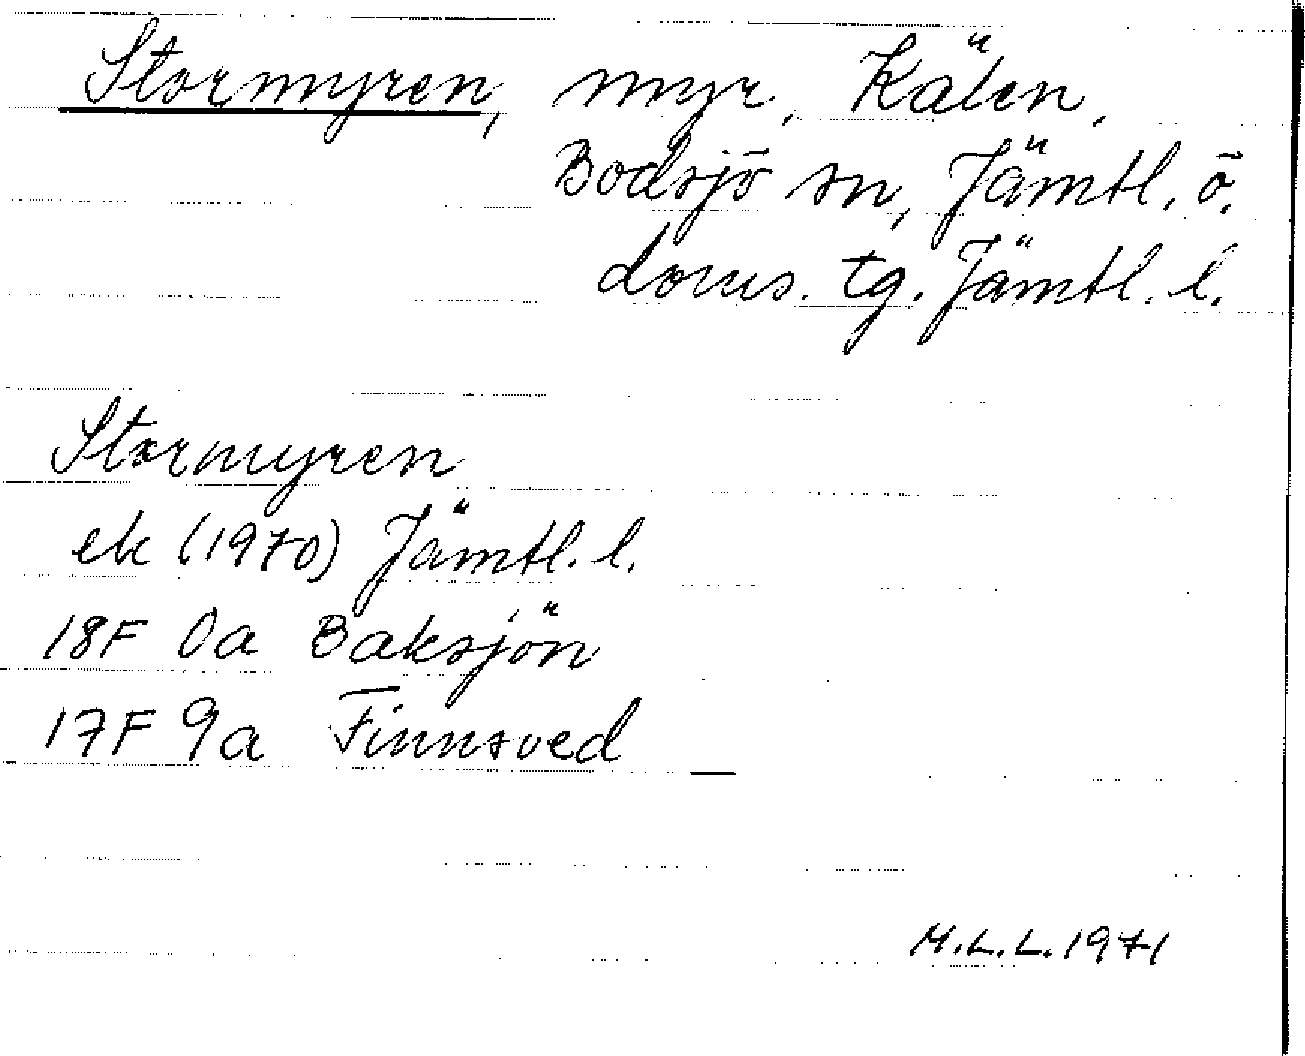 Stormyren, myr, Kälen,
Bodsjö sn, Jämtl. ö.
doms. tg. Jämtl. l.
Stormyren
ek (1970) Jämtl. l.
18F 0a Baksjön
17F 9a Finnsved
M.L.L. 1971